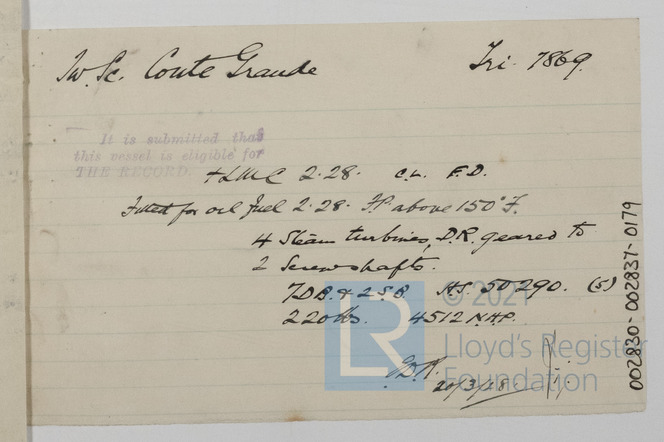 Tw. Sc. Conte Grande Tri. 7869.
It is submitted that
this vessel is eligible for
THE RECORD.
+LMC 2.28. C.L. F.D.
Fitted for oil fuel 2.28. F.P. above 150°F.
4 Steam turbines, D.R. geared to
2 Screwshafts.
7 D.B. & 2 S.B. H.S. 50290. (5)
220 lbs. 4512 N.H.P.
20/3/28.
© 2021
Lloyd's Register
Foundation
LR
002830-002837-0179